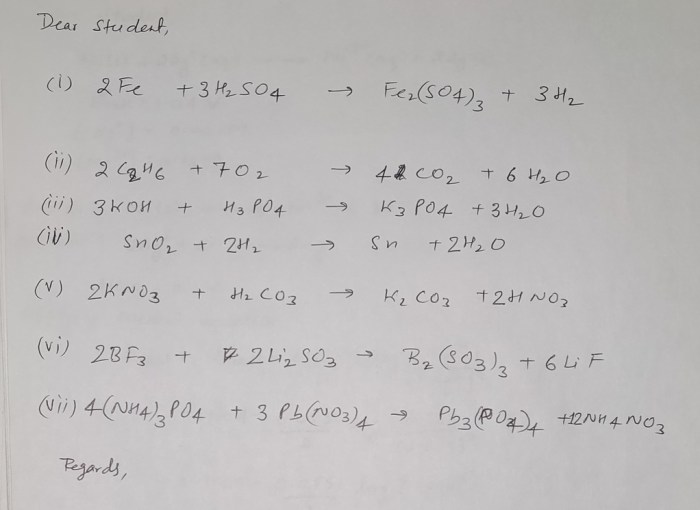 Dear Student,
(i) 2Fe + 3H₂SO4 → Fe₂(SO4)₃ + 3H₂
(ii) 2C₂H6 + 7O₂ → 4CO₂ + 6H₂O
(iii) 3KOH + H₃PO4 → K₃PO4 + 3H₂O
(iv) SnO₂ + 2H₂ → Sn + 2H₂O
(v) 2KNO₃ + H₂CO₃ → K₂CO₃ + 2HNO₃
(vi) 2BF₃ + 2Li₂SO₃ → B₂(SO₃)₃ + 6LiF
(vii) 4(NH4)₃PO4 + 3Pb(NO₃)₄ → Pb₃(PO4)₄ + 12NH4NO₃
Regards,